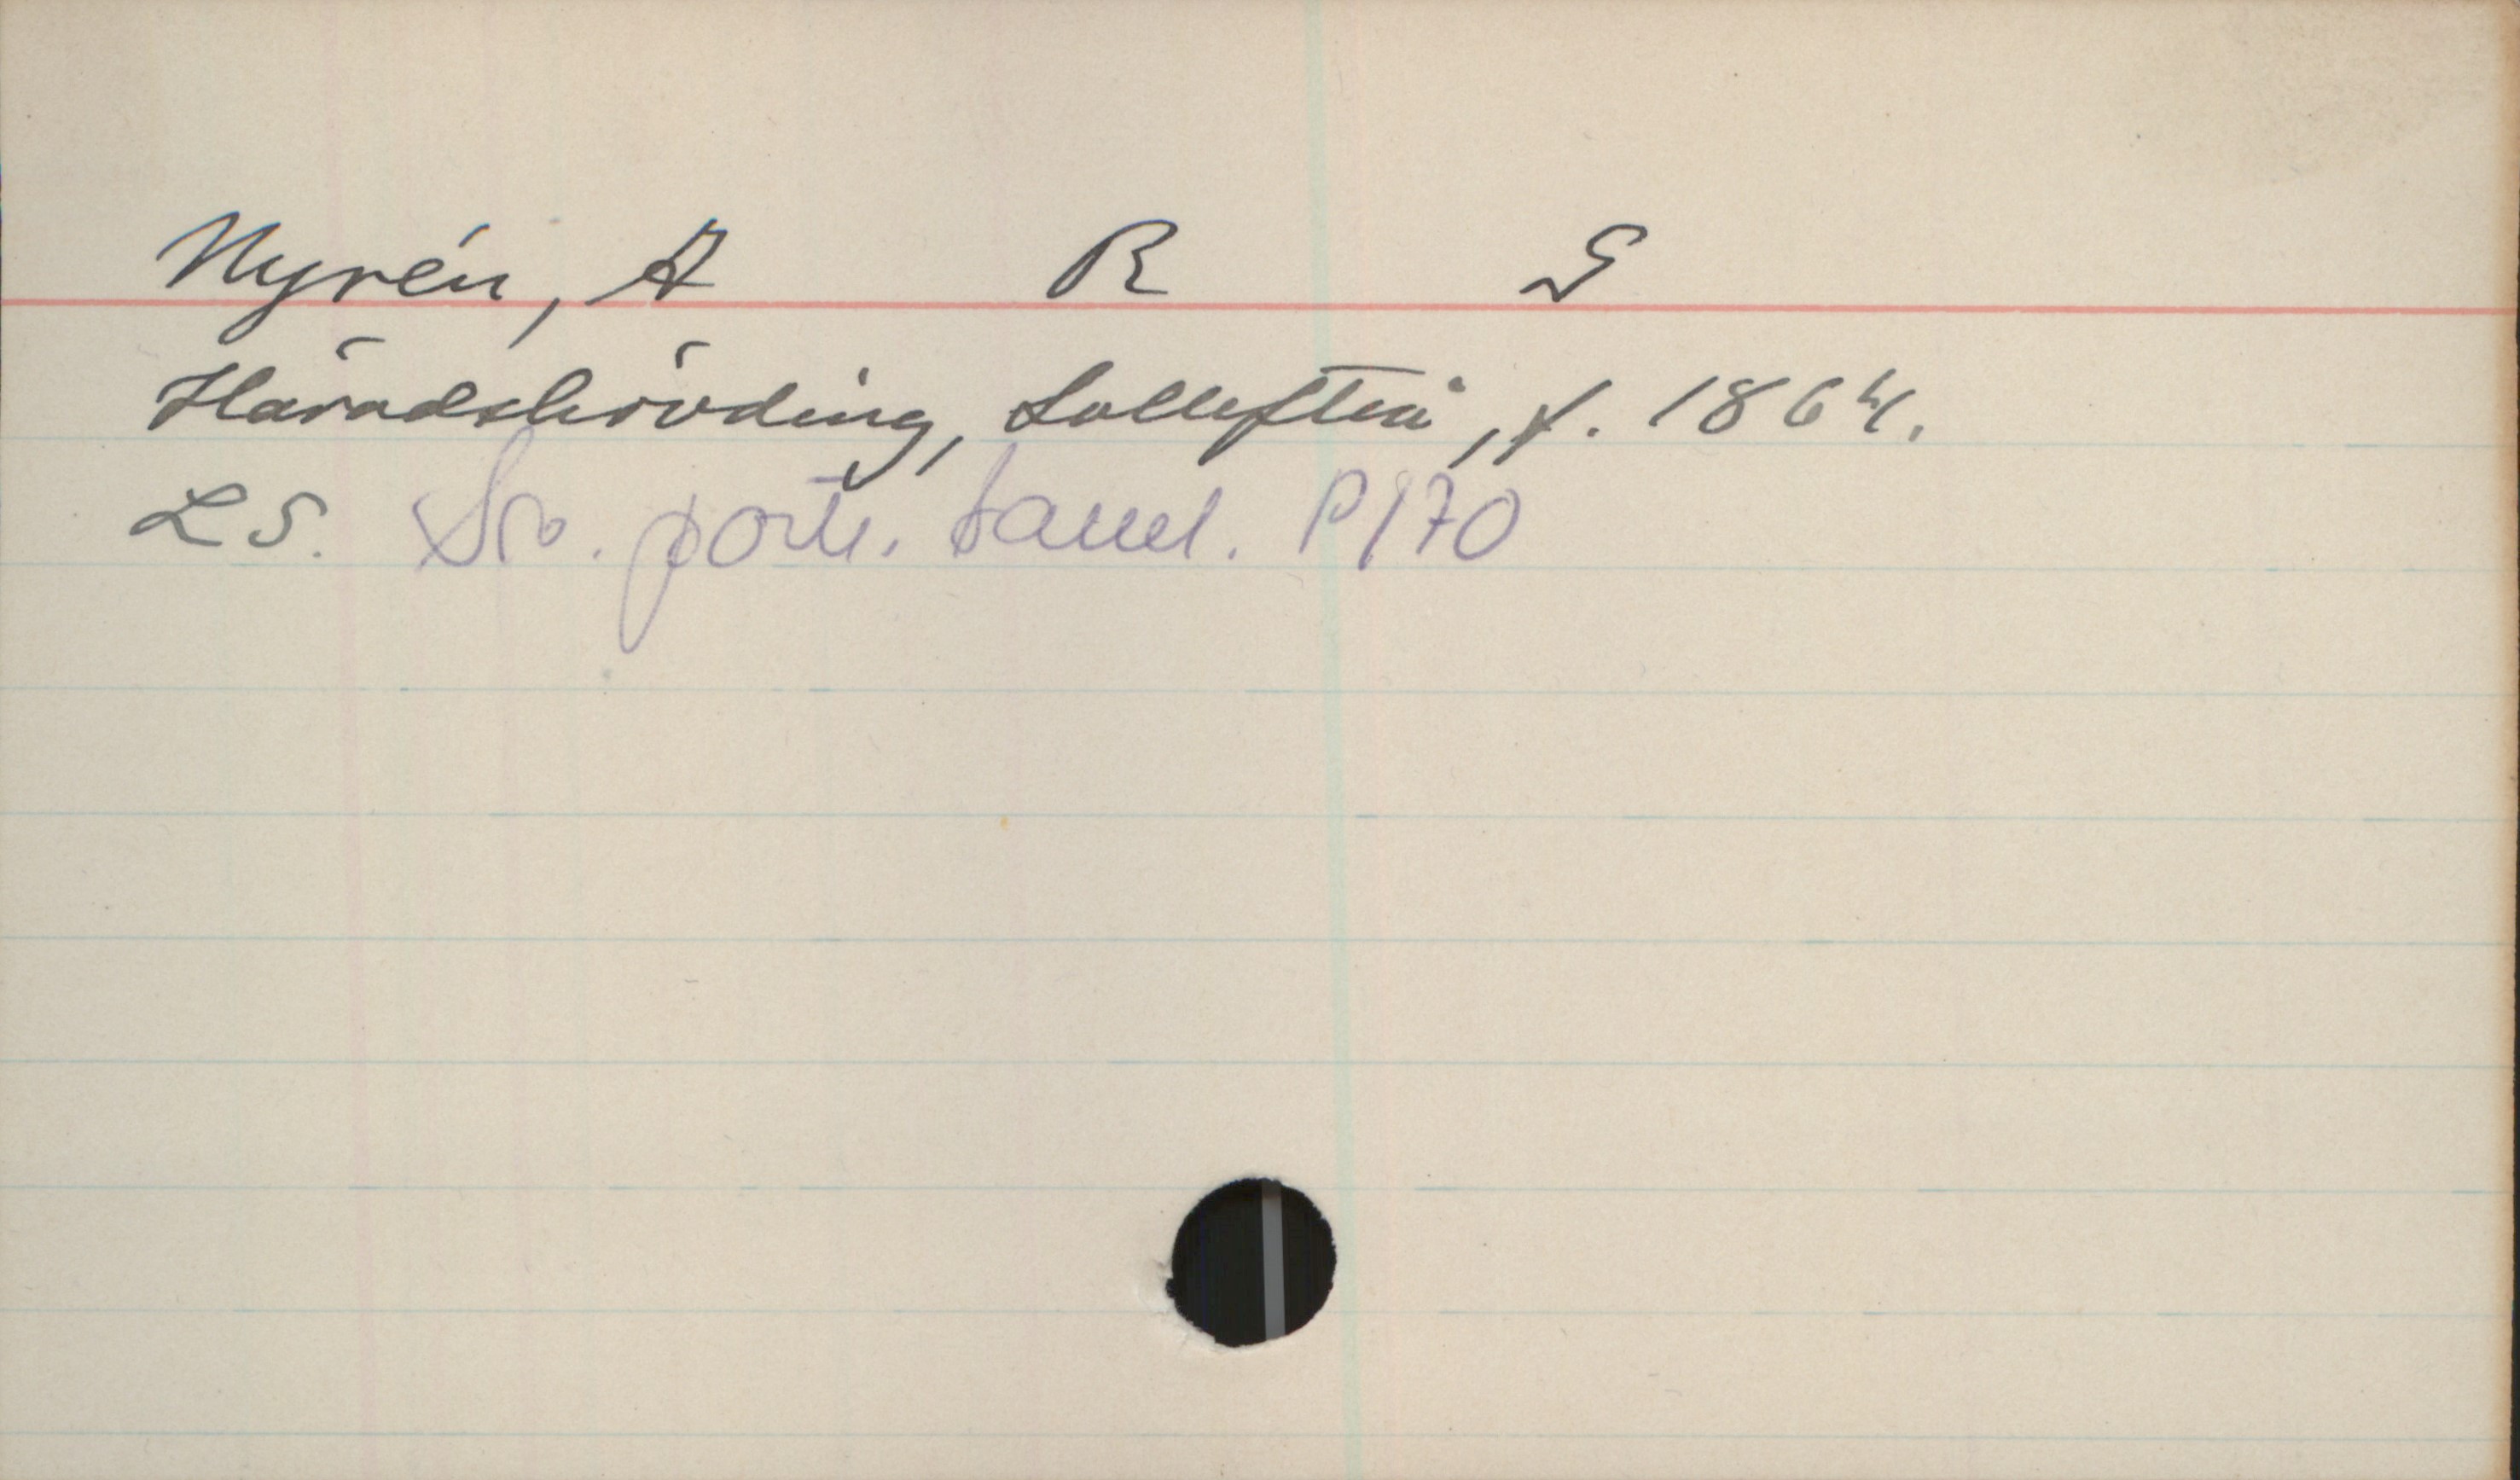 Nyrén, A R G
Häradshövding, Sollefteå, f. 1864.
LS. Sv. portr. saml. P170